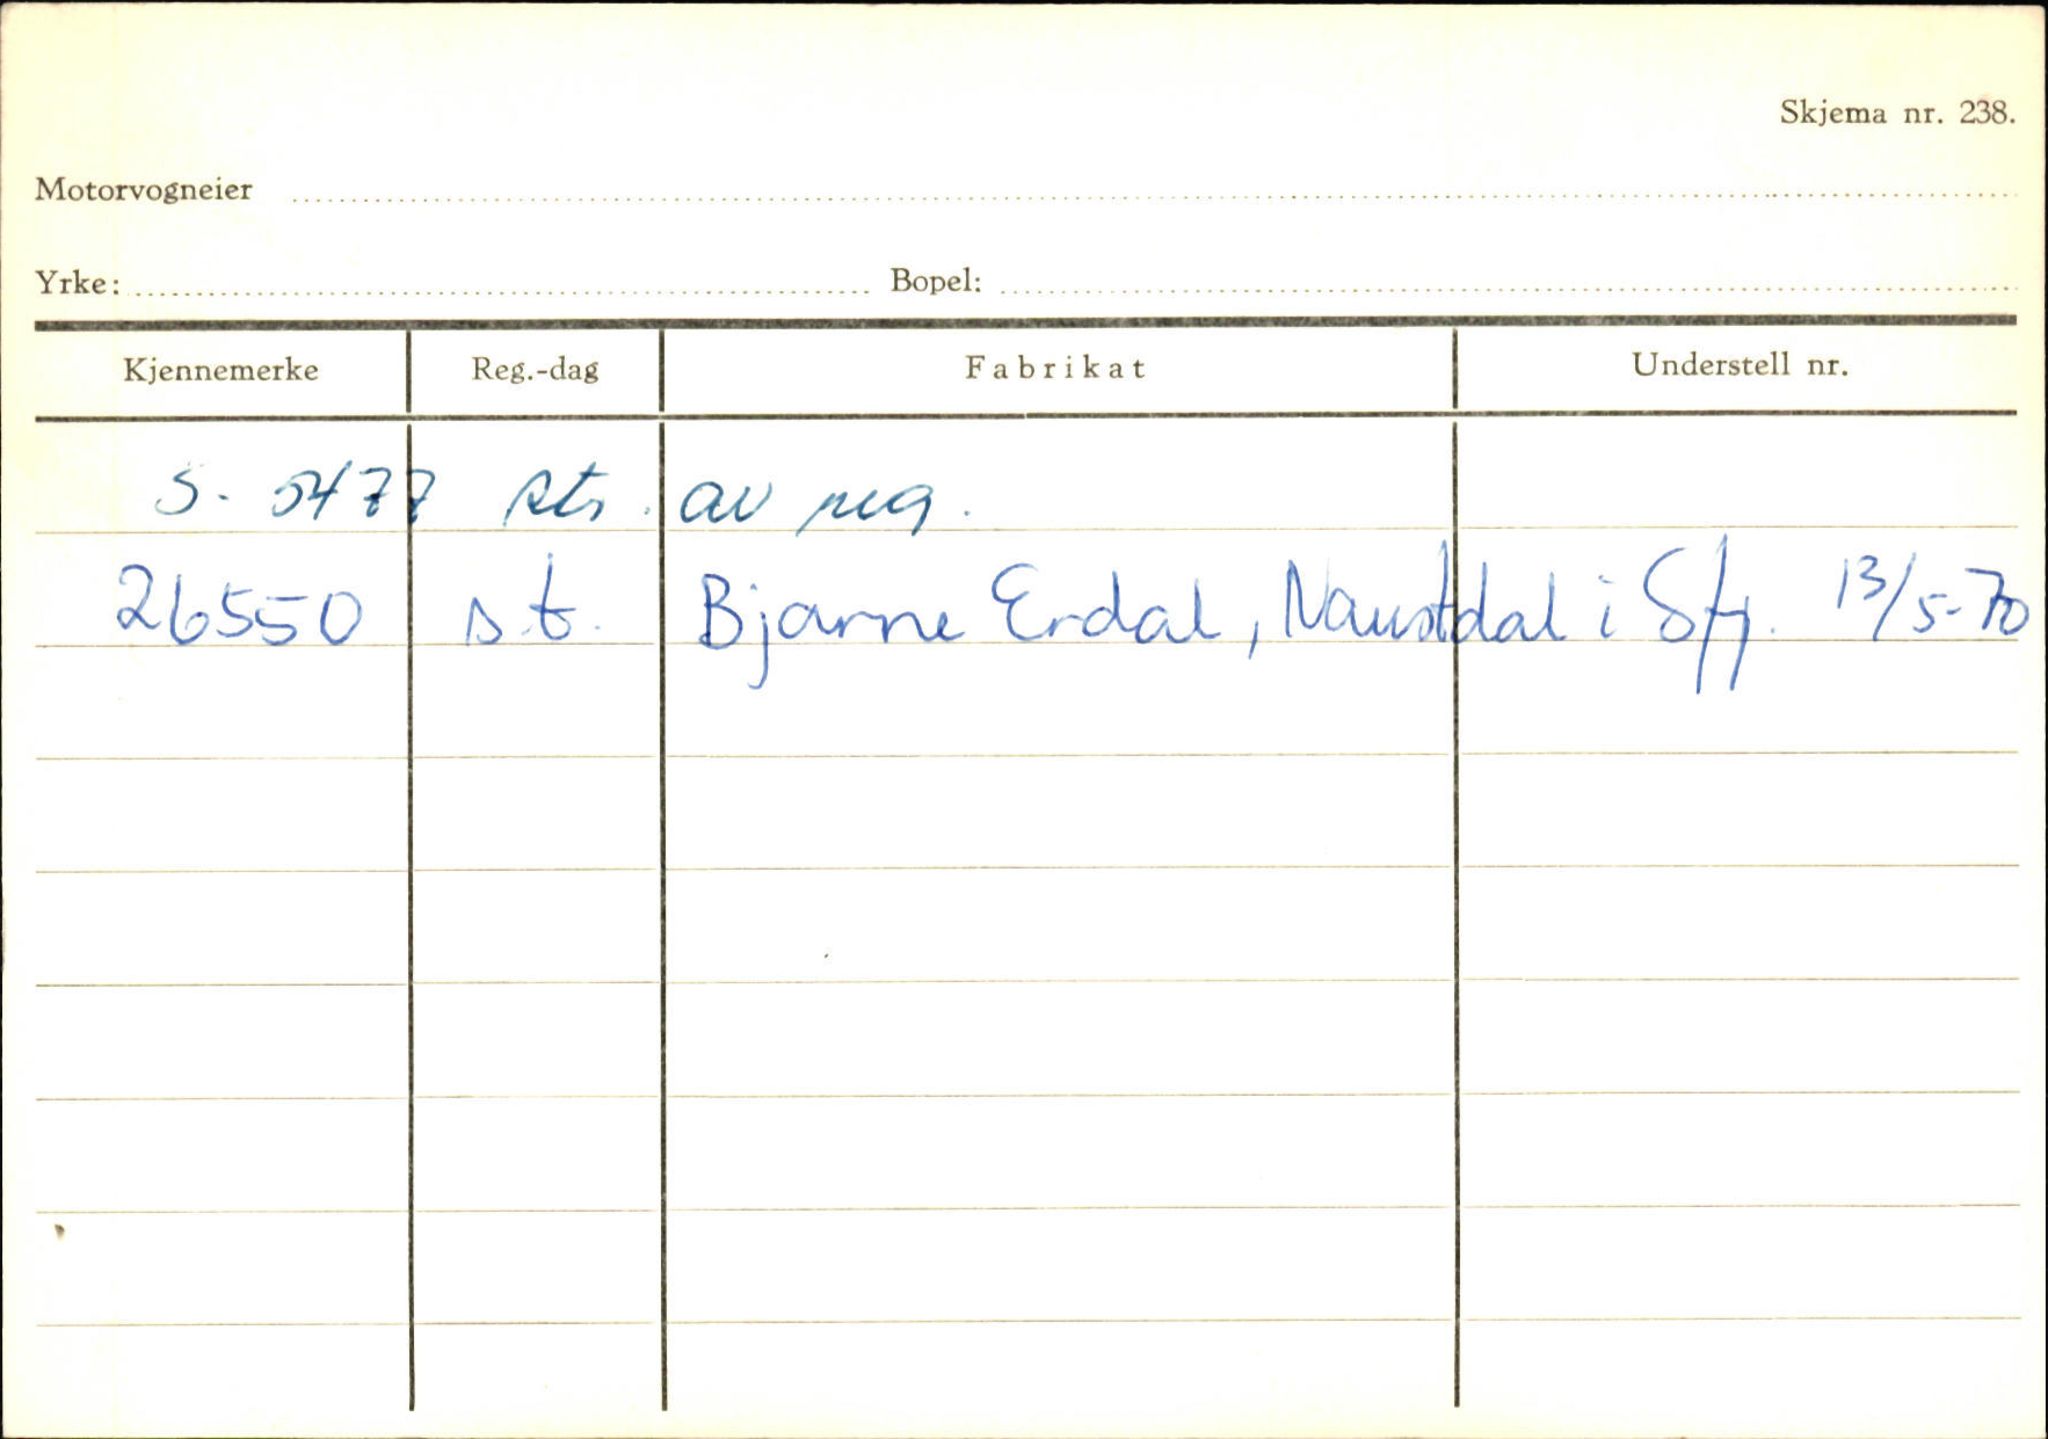 Skjema nr. 238.
Motorvogneier
Yrke: Bopel:
Kjennemerke Reg.-dag Fabrikat Understell nr.
S. 5477 str. av reg.
26550 s.t. Bjarne Erdal, Naustdal i Sfj. 13/5-70